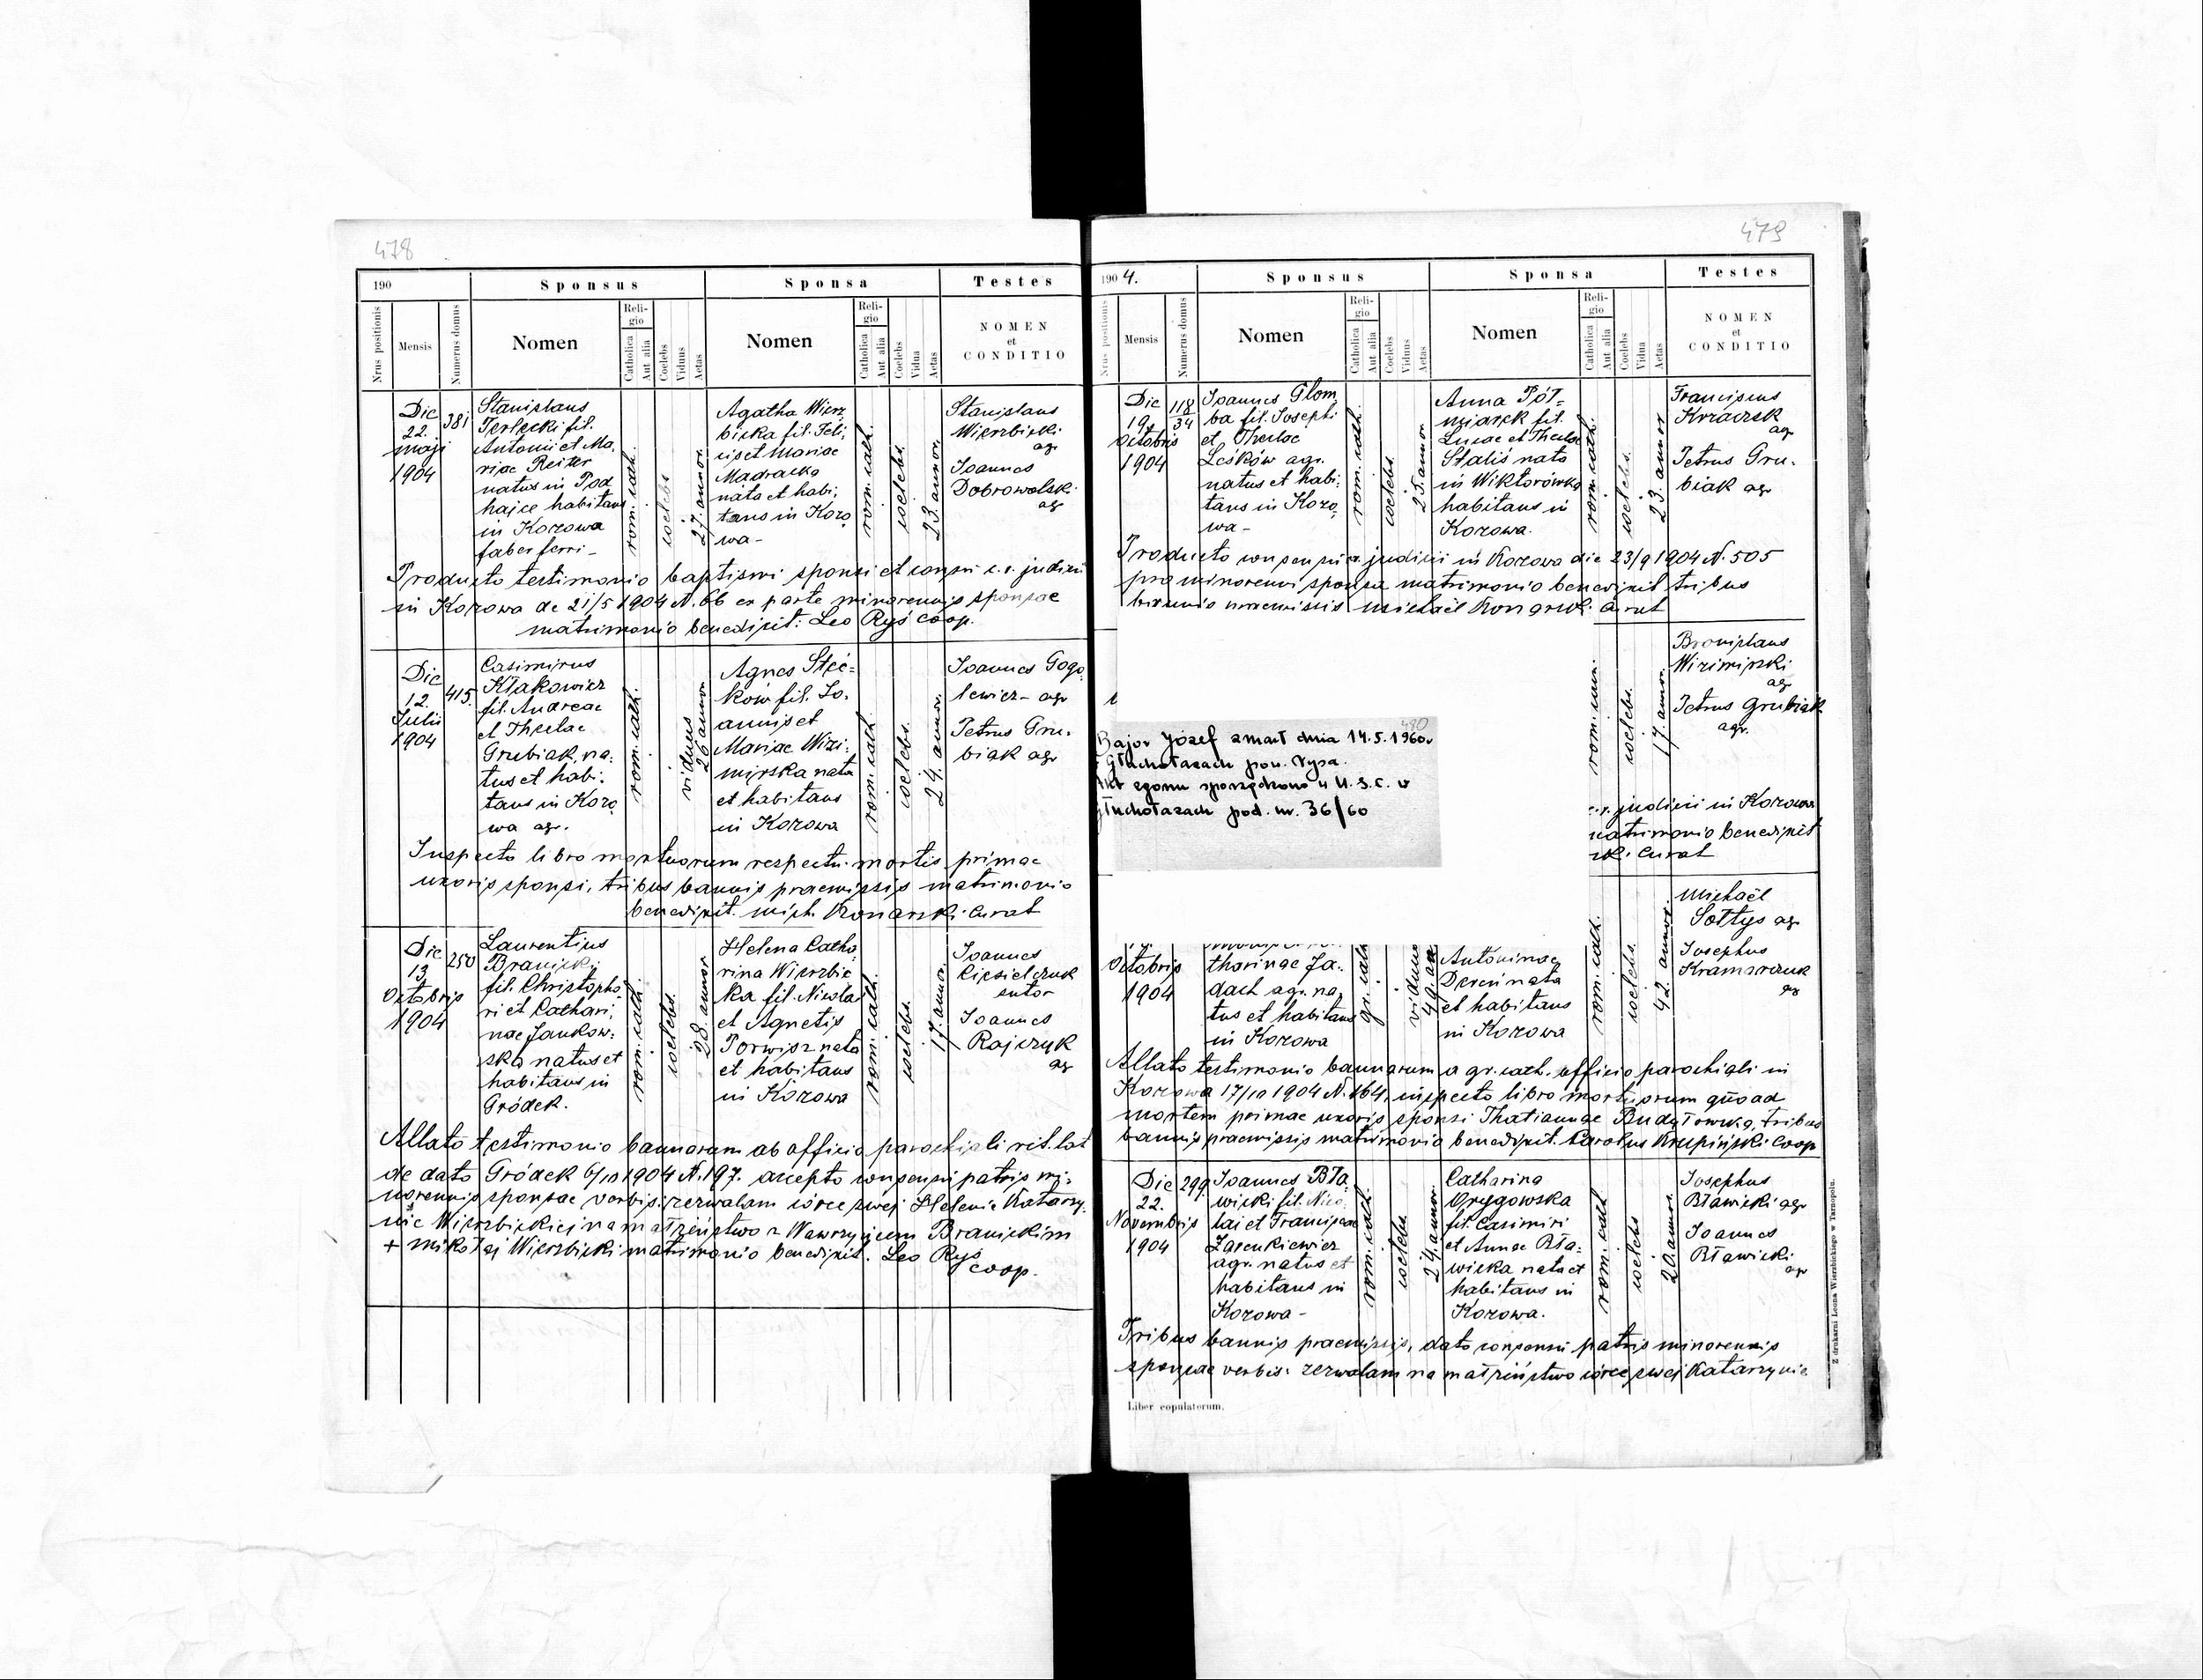 478
190
Sponsus
Sponsa
Testes
Nrus positionis
Mensis
Numerus domus
Nomen
Religio
Catholica
Aut alia
Coelebs
Viduus
Aetas
Nomen
Religio
Catholica
Aut alia
Coelebs
Vidua
Aetas
NOMEN
et
CONDITIO
Die
22.
maji
1904
381
Stanislaus
Terlecki fil.
Antonii et Ma,
riae Reiter
natus in Pod
hajce habitans
in Kozowa
faber ferri -
rom. cath.
coelebs
27. annor.
Agatha Wierz
bicka fil. Feli,
cis et Mariae
Madracka
nata et habi,
tans in Kozo,
wa -
rom. cath.
coelebs.
23. annor.
Stanislaus
Wierzbicki
agr
Joannes
Dobrowolski
agr
Producto testimonio baptismi sponsi et consen. c. r. judicii
in Kozowa de 21/5 1904 N. 66 ex parte minorennis sponsae
matrimonio benedixit: Leo Ryś coop.
Die
12.
Julii
1904
415.
Casimirus
Kłakowicz
fil. Andreae
et Theclae
Grubiak, na:
tus et habi:
tans in Kozo
wa agr.
rom. cath.
viduus
26 annor
Agnes Stec=
ków fil. Jo,
annis et
Mariae Wizi:
mirska nata
et habitans
in Kozowa
rom. cath.
coelebs.
24. annor.
Joannes Gogo,
lewicz - agr
Petrus Gru,
biak agr
Inspecto libro mortuorum respectu mortis primae
uxoris sponsi, tribus bannis praemissis matrimonio
benedixit. mich. Konarski. Curat
Die
13
Octobris
1904
250
Laurentius
Branicki
fil. Christopho,
ri et Cathari,
nae Jankow:
ska natus et
habitans in
Gródek.
rom. cath.
coelebs.
28. annor
Helena Catha
rina Wierzbic
ka fil. Nicolai
et Agnetis
Porwisz nata
et habitans
in Kozowa
rom. cath.
coelebs.
17. annor.
Joannes
Kisielczuk
sutor
Joannes
Rajczyk
agr
Allato testimonio bannorum ab officio parochiali rit. lat
de dato Gródek 6/10 1904 N. 197. accepto consensu patris mi:
norennis sponsae verbis: zezwalam córce swej Helenie Katarzy,
nie Wierzbickiej na małżeństwo z Wawrzyńcem Branickim
+ Mikołaj Wierzbicki matrimonio benedixit. Leo Ryś
coop.
479
1904.
Sponsus
Sponsa
Testes
Nrus positionis
Mensis
Numerus domus
Nomen
Religio
Catholica
Aut alia
Coelebs
Viduus
Aetas
Nomen
Religio
Catholica
Aut alia
Coelebs
Vidua
Aetas
NOMEN
et
CONDITIO
Die
19
Octobris
1904
118
34
Joannes Głom
ba fil. Josephi
et Theclae
Leśków agr.
natus et habi:
tans in Kozo,
wa -
rom. cath.
coelebs.
25. annor.
Anna Pół=
miarek fil.
Lucae et Theclae
Staliś nata
in Wiktorówka
habitans in
Kozowa.
rom. cath.
coelebs.
23. annor
Franciscus
Krzaczek
agr
Petrus Gru,
biak agr
Producto consensu c. r. judicii in Kozowa die 23/9 1904 N. 505
pro minorenni sponsa matrimonio benedixit tribus
bannis praemissis Michaël Konarski. Curat
Bronislaus
Wizimirski
agr
Petrus Grubiak
agr.
coelebs.
17. annor.
480
Bajor Józef zmarł dnia 14.5.1960r
Głuchołazach pow. Nysa.
Akt zgonu sporządzono w U.S.C. w
Głuchołazach pod. nr. 36/60
c. r. judicii in Kozowa
matrimonio benedixit
ski. Curat
Michaël
Sołtys agr
Josephus
Kramarczuk
agr
Octobris
1904
tharinae Ja:
dach agr. na,
tus et habitans
in Kozowa
gr. cath
viduus
49. an
Antoninae
Dereń nata
et habitans
in Kozowa
rom. cath.
coelebs.
42. annor.
Allato testimonio bannorum a gr. cath. officio parochiali in
Kozowa 17/10 1904 N. 164, inspecto libro mortuorum quoad
mortem primae uxoris sponsi Thatiannae Budyłowska, tribus
bannis praemissis matrimonio benedixit. Carolus Krupiński Coop
Die
22.
Novembris
1904
299
Joannes Bła,
wicki fil. Nico,
lai et Franciscae
Zacenkiewicz
agr. natus et
habitans in
Kozowa -
rom. cath.
coelebs
24. annor.
Catharina
Grygowska
fil. Casimiri
et Annae Bła=
wicka nata et
habitans in
Kozowa.
rom. cath
coelebs
20. annor.
Josephus
Bławicki agr
Joannes
Bławicki
agr
Tribus bannis praemissis, dato consensu patris minorennis
sponsae verbis: zezwalam na małżeństwo córce swej Katarzynie
Liber copulatorum.
Z drukarni Leona Wierzbickiego w Tarnopolu.